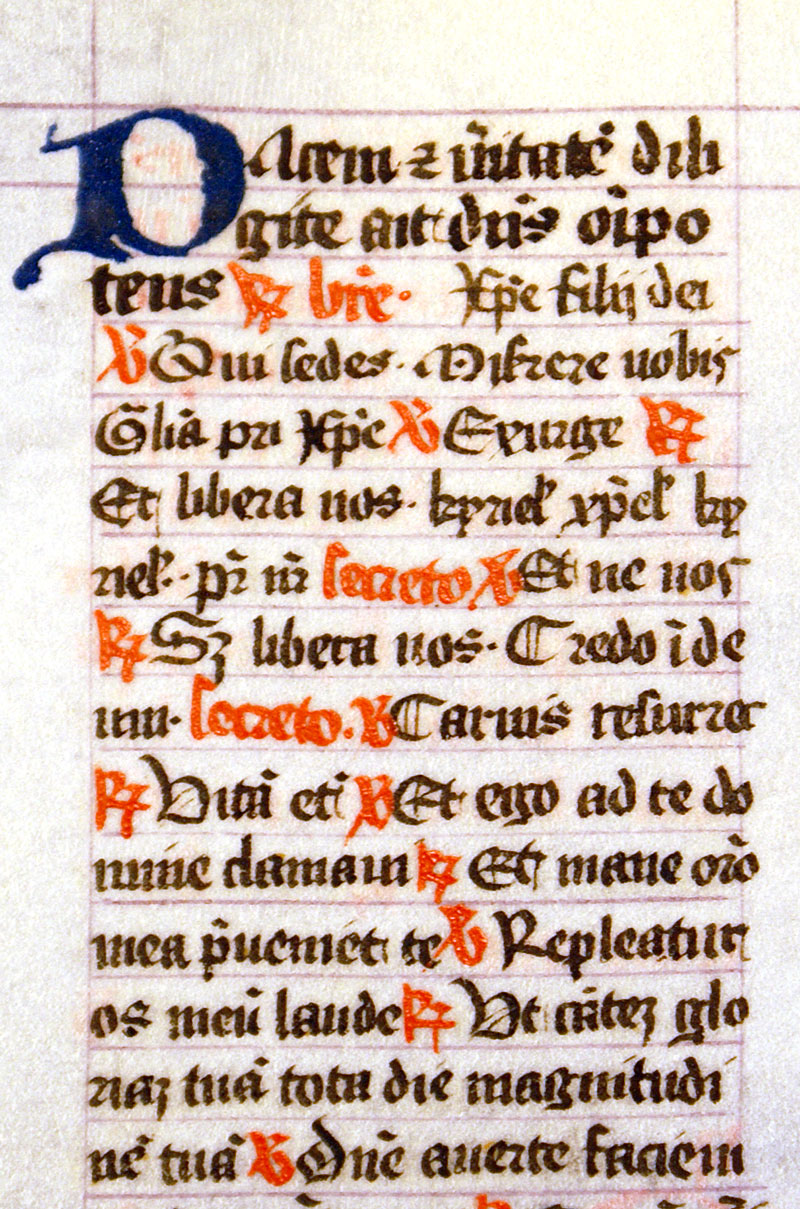 Pacem ⁊ v̄itatē dili
gite ait dn̄s om̄ipo
tens ℟ br̄e· Xp̄e filij dei
℣ Qui sedes· Miserere nobis
Glīa pri Xp̄e ℣ Exurge ℟
Et libera nos· kyriel̄ xp̄el̄ ky
riel̄· pr̄ nr̄ secreto ℣ Et ne nos
℟ Sꝫ libera nos· Credo ī de
um· secreto· ℣ Carnis resurrec
℟ Vitā et̄ ℣ Et ego ad te do
mine clamaui ℟ Et mane or̄o
mea p̄ueniet te ℣ Repleatur
os meū laude ℟ Vt cāteꝫ glo
riaꝫ tuā tota die magnitudi
nē tuā ℣ Dn̄e auerte faciem